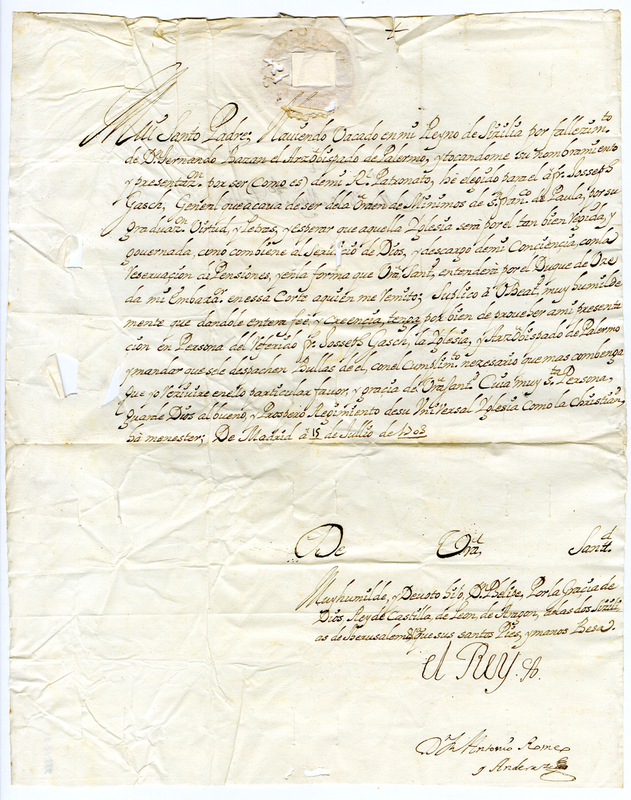 Muy Santo Padre; Haviendo Vacado en mi Reyno de Sizilia por fallezim.to
de Dn. Fernando Bazan el Arzobispado de Palermo, y tocandome su nombramiento
y presentaz.on por ser (como es) de mi Rl. Patronato, hè elegido para el à fr. Josseph
Gasch, General que acava de ser de la orden de Minimos de Sn. Fran.co de Paula, por su
graduaz.on Virtud, y letras, y esperar que aquella Iglesia serà por el tan bien regida, y
governada, como combiene al servicio de Dios, y descargo de mi Conciencia, con la
reservacion de Pensiones, y en la forma que Vra. Sant.d entenderà por el Duque de Uze
da mi Embax.or en essa Corte a quien me remito; Suplico à V. Beat.d muy humilde
mente que dandole entera feè, y creencia, tenga por bien de proveer a mi presenta
cion en Persona del referido fr. Josseph Gasch, la Iglesia, y Arzobispado de Palermo
y mandar que se le despachen Bullas de el, con el Cumplim.to necesario que mas combenga
que yo recivire en ello particular favor, y gracia de Vra. Sant.d Cuia muy sta. Persona,
guarde Dios al bueno, y Prospero Regimiento de su Universal Iglesia como la Christian.d
hà menester; De Madrid à 15 de Jullio de 1703
De Vra. Sant.d
Muy humilde, y Devoto hijo Dn. Phelipe, Por la Gracia de
Dios Rey de Castilla, de Leon, de Aragon, de las dos Sizili
as de Jherusalem &a. que sus santos Pies, y manos Besa.
el REY.
Dn. Antonio Romeo
y Anderaz